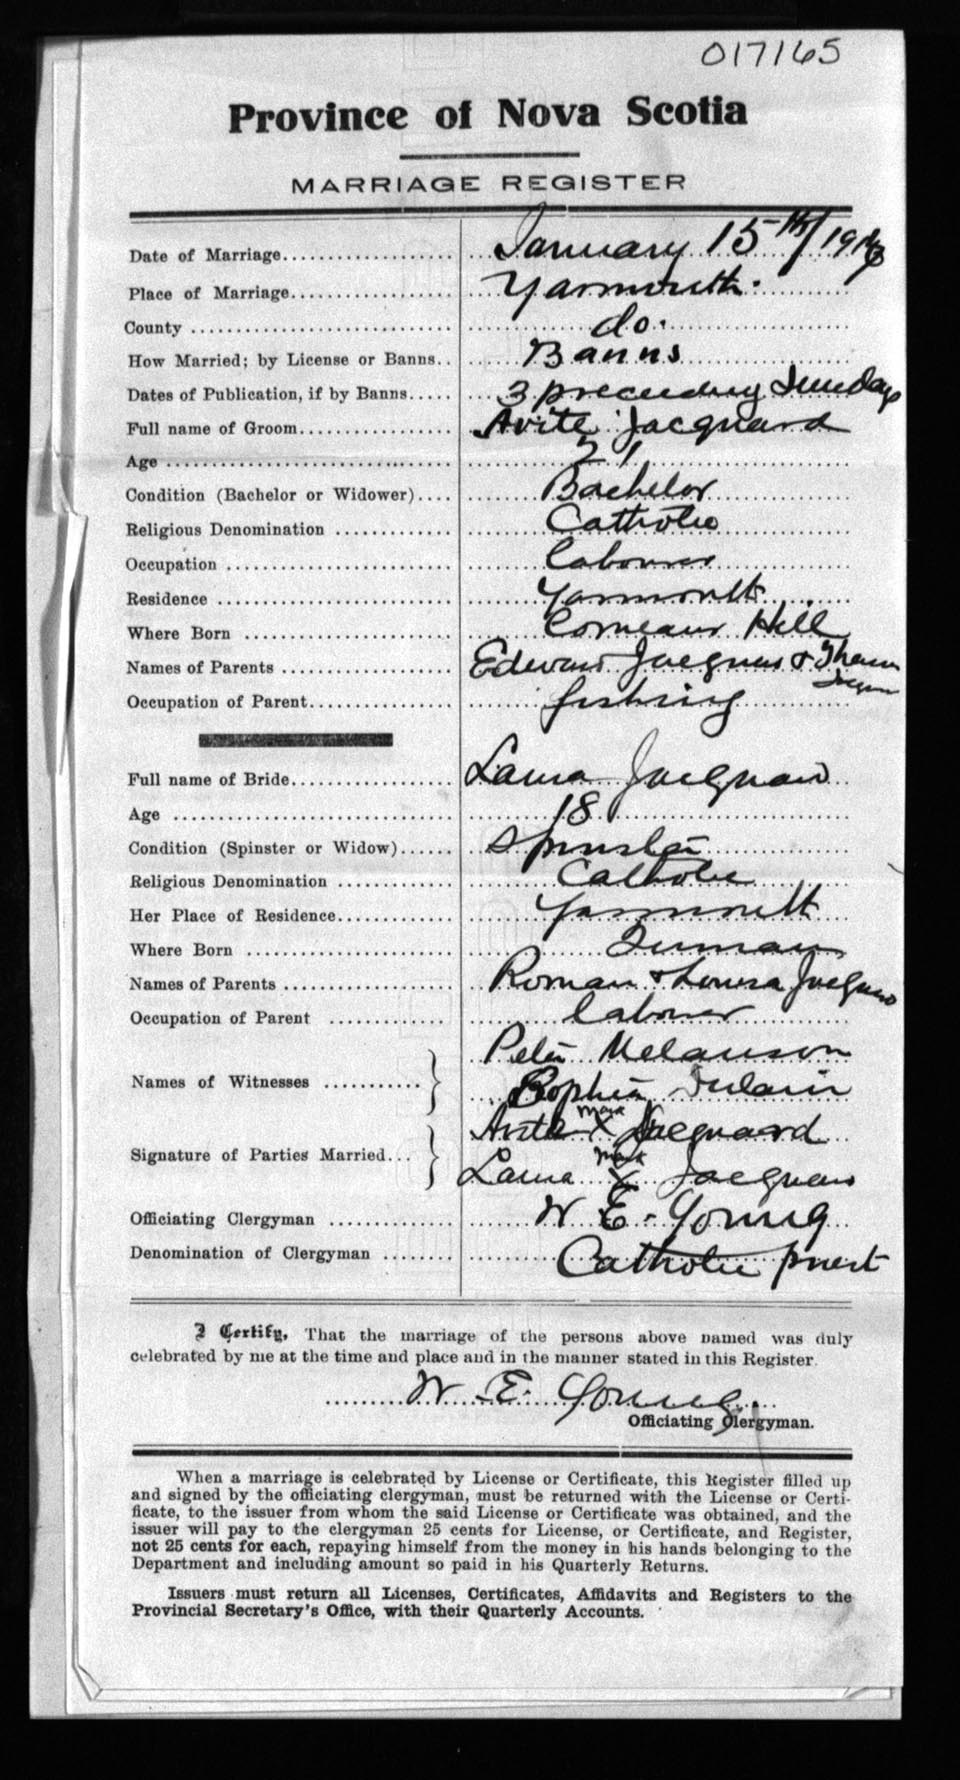 017165
Province of Nova Scotia
MARRIAGE REGISTER
Date of Marriage January 15th/19
Place of Marriage Yarmouth.
County do.
How Married; by License or Banns Banns
Dates of Publication, if by Banns 3 preceeding Sundays
Full name of Groom Avite Jacquard
Age 21
Condition (Bachelor or Widower) Bachelor
Religious Denomination Catholic
Occupation labourer
Residence Yarmouth
Where Born Comeaus Hill
Names of Parents Edward Jacquard &
Occupation of Parent fishing
Full name of Bride Laura Jacquard
Age 18
Condition (Spinster or Widow) Spinster
Religious Denomination Catholic
Her Place of Residence Yarmouth
Where Born
Names of Parents Roman & Louisa Jacquard
Occupation of Parent labourer
Names of Witnesses Peter Melanson
Sophia
Signature of Parties Married Avite X mark Jacquard
Laura X mark Jacquard
Officiating Clergyman W E. Young
Denomination of Clergyman Catholic priest
I Certify, That the marriage of the persons above named was duly
celebrated by me at the time and place and in the manner stated in this Register.
W. E. Young.
Officiating Clergyman.
When a marriage is celebrated by License or Certificate, this Register filled up
and signed by the officiating clergyman, must be returned with the License or Certi-
ficate, to the issuer from whom the said License or Certificate was obtained, and the
issuer will pay to the clergyman 25 cents for License, or Certificate, and Register,
not 25 cents for each, repaying himself from the money in his hands belonging to the
Department and including amount so paid in his Quarterly Returns.
Issuers must return all Licenses, Certificates, Affidavits and Registers to the
Provincial Secretary's Office, with their Quarterly Accounts.